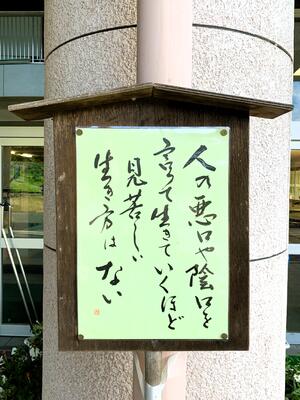 人の悪口や陰口を
言って生きていくほど
見苦しい
生き方はない